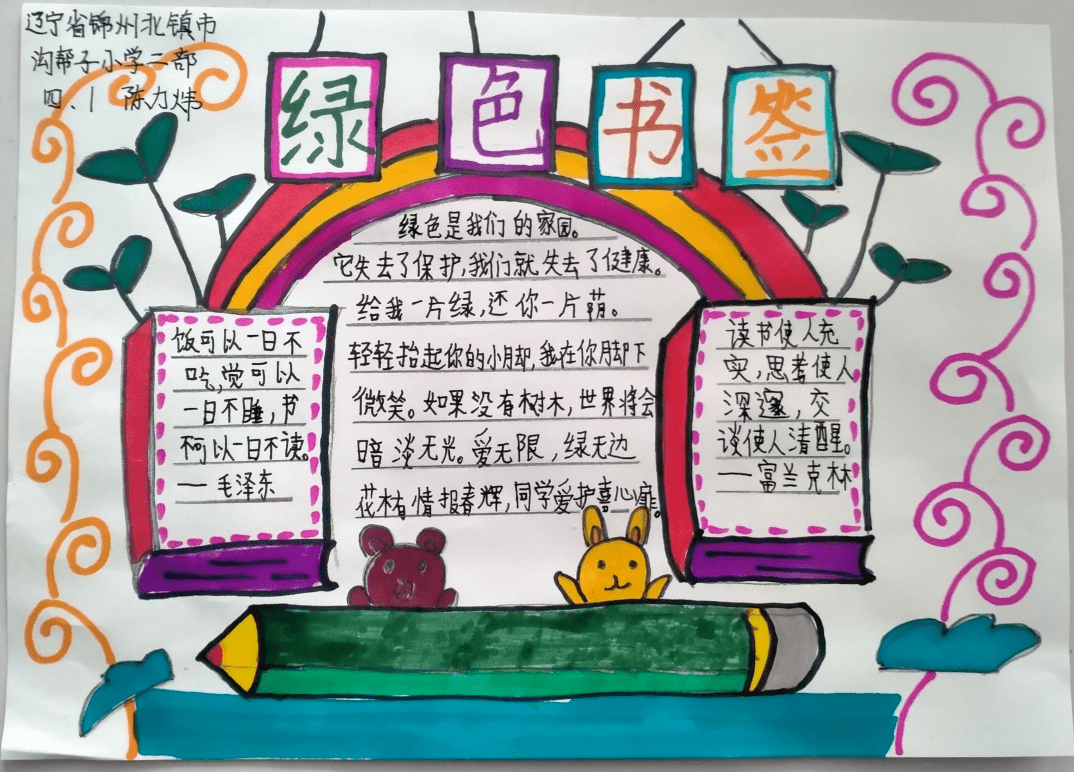 辽宁省锦州北镇市
沟帮子小学二部
四、1 陈力炜
绿色书签
绿色是我们的家园。
它失去了保护,我们就失去了健康。
给我一片绿,还你一片荫。
轻轻抬起你的小脚,我在你脚下
微笑。如果没有树木,世界将会
暗淡无光。爱无限,绿无边
花木有情报春辉,同学爱护喜心扉。
饭可以一日不
吃,觉可以
一日不睡,书
不可以一日不读。
—毛泽东
读书使人充
实,思考使人
深邃,交
谈使人清醒。
—富兰克林